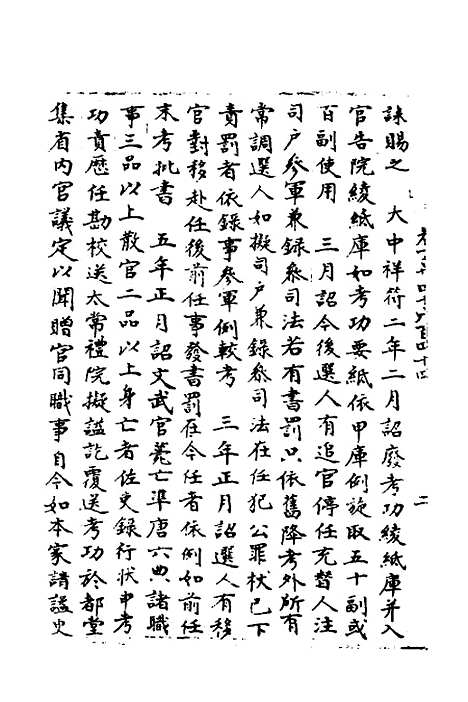 詠賜之　大中祥符二年二月詔廢考功綾紙庫并入
官告院綾紙庫如考功要紙依甲庫例旋取五十副或
百副使用　三月詔令後選人有追官停任充替人注
司戶參軍兼錄參司法若有書罰只依舊降考外所有
常調選人如擬司戶兼錄參司法在任犯公罪杖已下
責罰者依錄事參軍例較考　三年正月詔選人有移
官對移赴任後前任事發書罰在今任者依例如前任
末考批書　五年正月詔文武官薨亡準唐六典諸職
事三品以上散官二品以上身亡者佐史錄行狀申考
功責歷任勘校送太常禮院擬謚訖覆送考功於都堂
集省內官議定以聞贈官同職事自今如本家請謚史
二